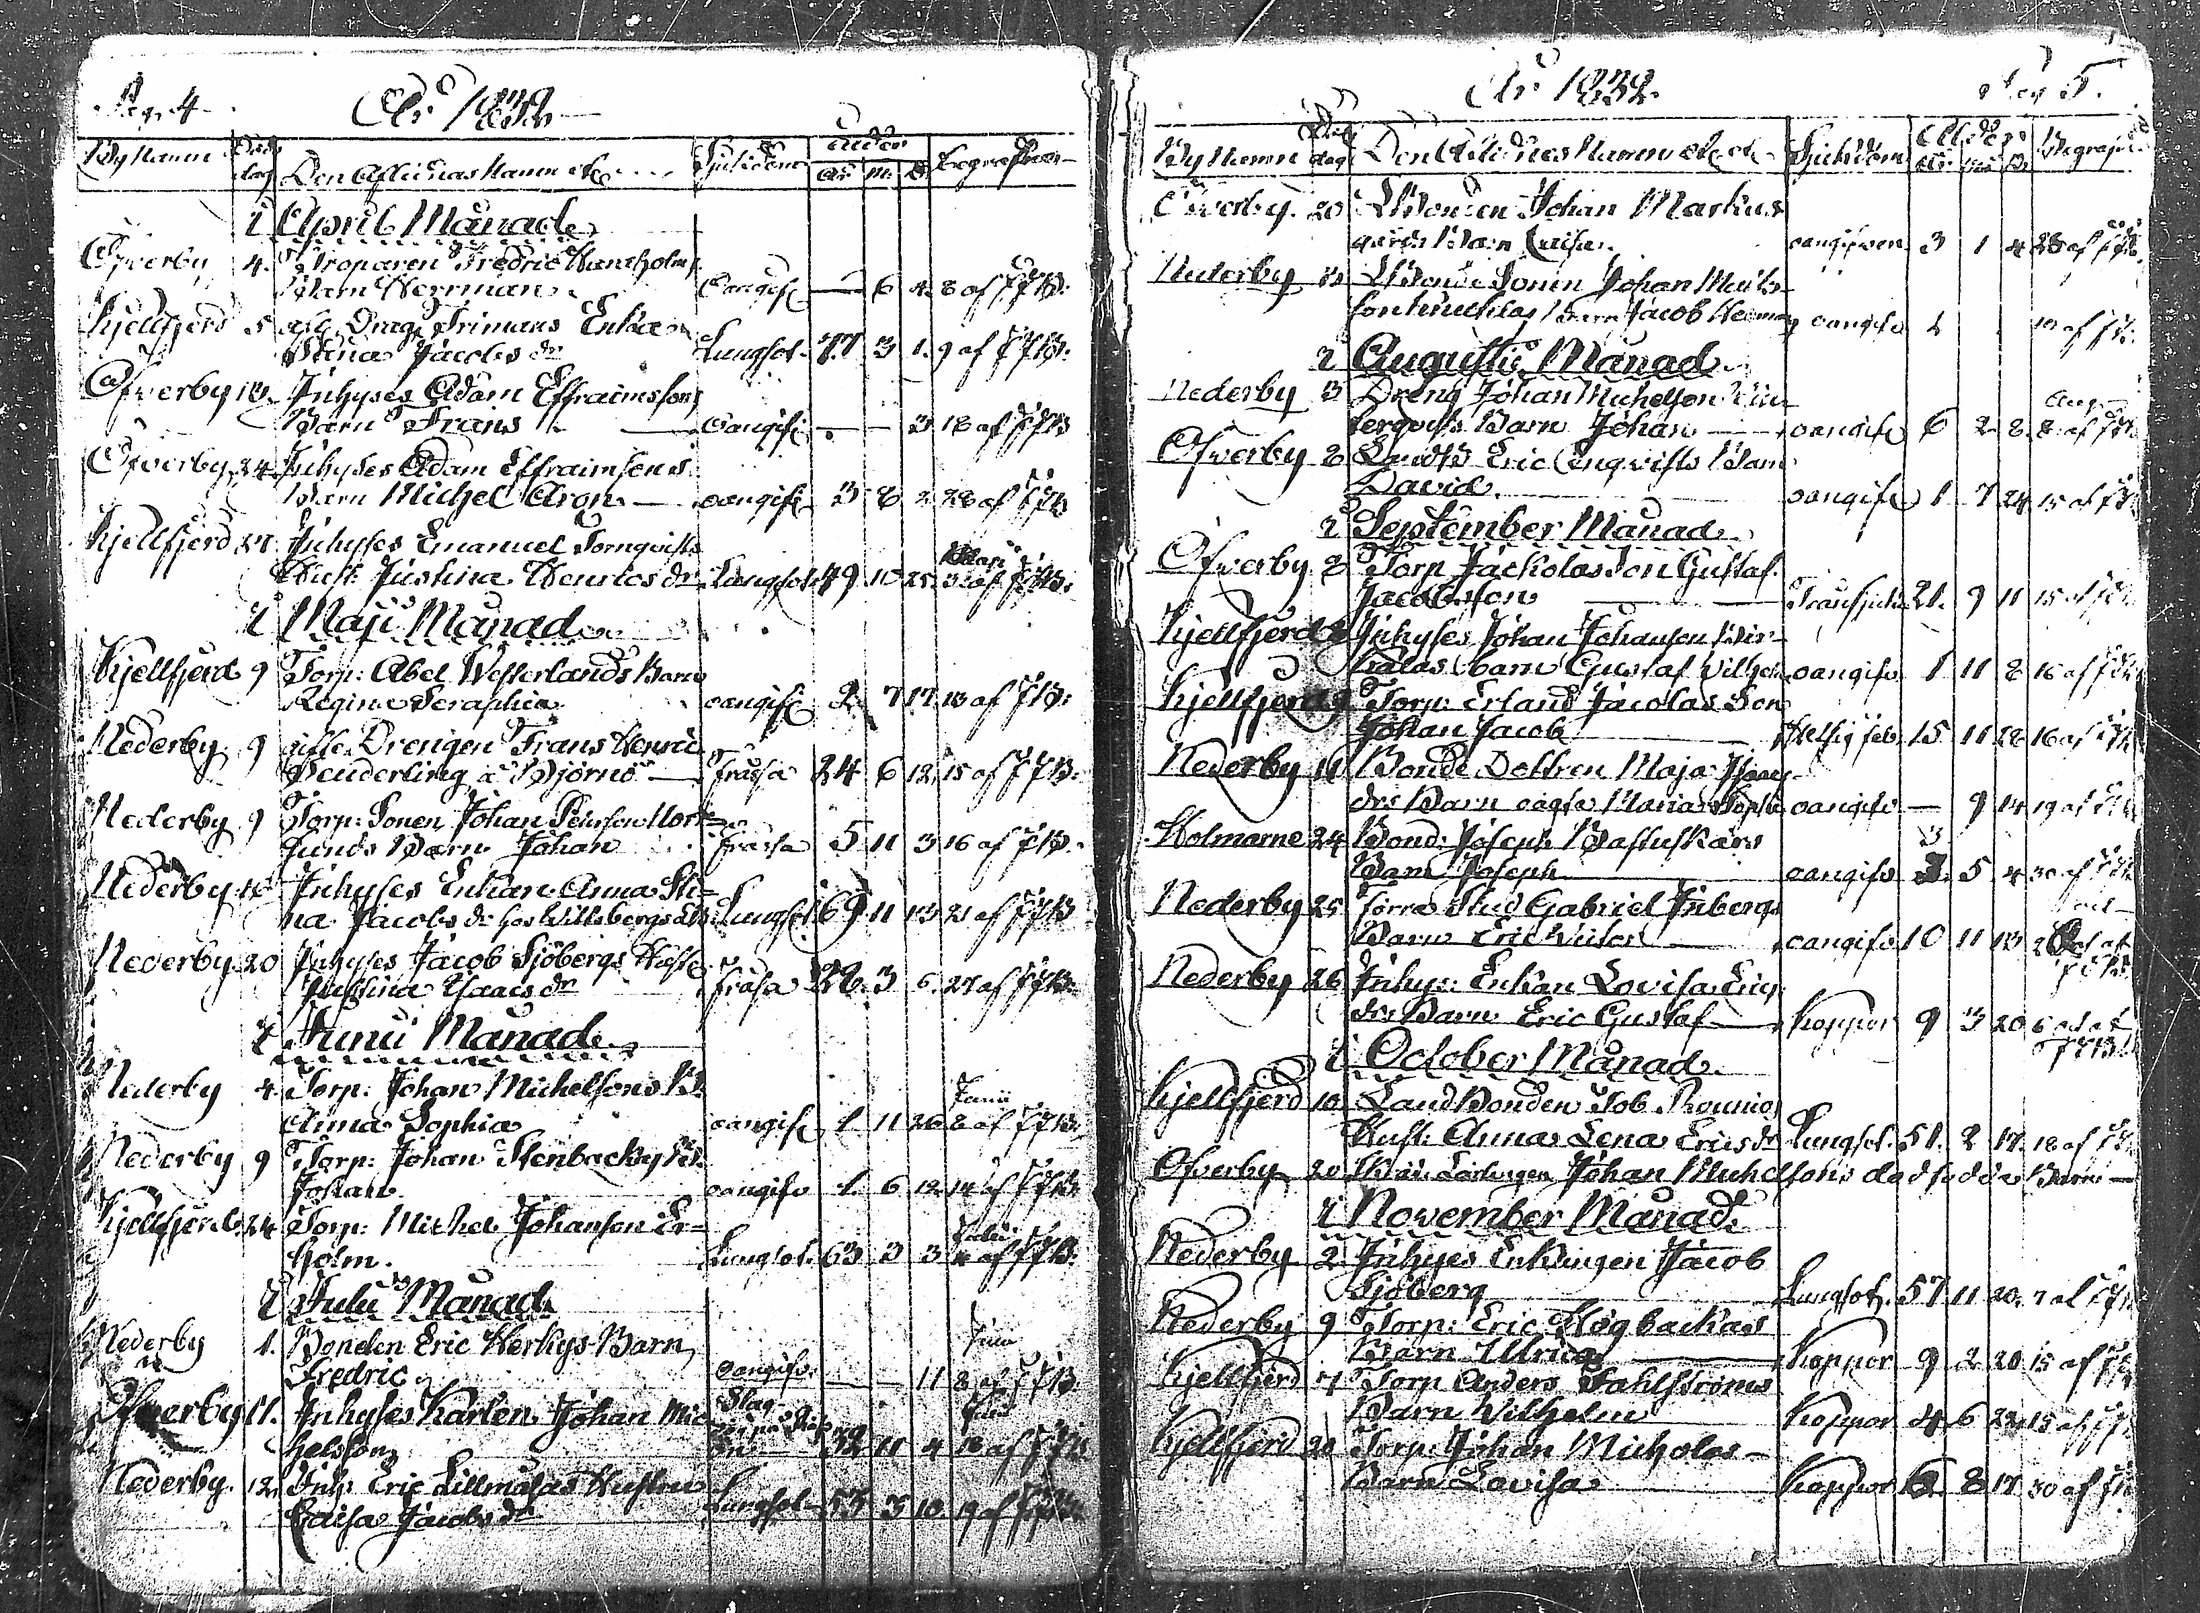 Pag. 4
År 1832
By Namn Död dag Den Aflidnas Namn &c. Sjukdom Ålder Begrafven
År M. D.
i April Månad
Öfverby 4.
Barn Herrman oangifv — 6 4. 8 af JJB:
Kjellfjerd 5 Enka
Stina Jacobs dr Lungsot. 77 3 1. 9 af JJB:
Öfverby 13. Inhyses Adam Effraimssons
Barn Frans oangifv — — 3 18 af JJB
Öfverby 24 Inhyses Adam Effraimsons
Barn Michel Aron — oangifv 3 8 2 28 af JJB
Kjellfjerd 27 Inhyses Emanuel Tornqvists
Hust: Justina Henrics dr Lungsot 49 10 25. Maji af JJB:
i Maji Månad
Kjellfjerd 9 Torp: Abel Westerlands Barn
Regina Seraphia oangifv 2 7 17. 13 af JJB:
Nederby 9 gifte Drengen Frans Henric
Benderling a Björnö — frassa 24 6 12. 15 af JJB.
Nederby 9 Torp: Sonen Johan
Barn Johan frassa 5 11 3 16 af JJB.
Nederby 16 Inhyses Enkan Anna Sti-
na Jacobs dr hos Lungsot 69 11 13 21 af JJB
Nederby 20 Inhyses Jacob Sjöbergs Hust:
Justina Isaacs dr frasa 28. 3 6. 27 af JJB.
i Junii Månad
Nederby 4. Torp: Johan Michelsons B.
Anna Sophia oangifv 1. 11 26 Junii 8 af JJB.
Nederby 9 Torp: Johan Stenbackas B.
Johan oangifv 1. 6 12. 14 af JJB
Kjellfjerd. 24 Torp: Michel Johanson Er=
holm. Lungsot. 63 3 3 Julii af JJB:
i Julii Månad
Nederby 1. Bonden Eric Herkys Barn
Fredric oangifv. — 11 8 af JJB
Öfverby 11. Inhyses Karlen Johan Mic
helsson Slag 11 4 18 af JJB
Nederby. 12. Inh: Eric Lillmåsas Hustru
Caisa Jacobs dr Lungsot — 55 3 10. 19 af JJB
År 1832.
Pag 5.
By Namn Död dag Den Aflidnas Namn &c Sjukdom Ålder Begrafven
Öfverby. 20 Bonden Johan Markus
gårds Barn Caisa. oangifven 3 1 4 28 af JJB.
Nederby Bonde Sonen Johan
Barn Jacob Herman oangifv 10 af JJB.
i Augusti Månad
Nederby 3 Dreng Johan Michelson
Barn Johan — oangifv 6 2 8. Aug. 8 af JJB
Öfverby 8 Eric Engvists Barn
David. oangifv 1 7 24 15 af JJB
i September Månad
Öfverby 8 Torp Jäckolas Son Gustaf
Jacobsson — 21. 9 11 15 af JJB
Kjellfjerd 8 Inhyses Johan Johanson
Barn Gustaf Vilhelm oangifv 1 11 8 16 af JJB
Kjellfjerd 9 Torp: Erland Jäcolas Son
Johan Jacob — 15 11 28 16 af JJB
Nederby 11 Bonde Dottren Maja Isacs
drs Barn oagta Maria Sophia oangifv — 9 14 19 af JJB
Holmarne 24 Bond: Joseph Bastuskärs
Barn Joseph — oangifv 3 5 4 30 af JJB
Nederby 25 Gabriel Inbergs
Barn Eric — oangifv 10 11 13 af
JJB.
Nederby 26 Inhys: Enkan Lovisa Erics
drs Barn Eric Gustaf — Koppor 9 3 20 6 oct af
JJB.
i October Månad
Kjellfjerd 10 LandBonden Job Rounios
Hust: Anna Lena Erics dr Lungsot. 51. 2 17. 18 af JJB
Öfverby 20 Johan Michelsons dödfödde Barn —
i November Månad
Nederby 2 Inhyses Enklingen Jacob
Sjöberg Lungsot. 57 11 20. 7 af JJB
Nederby 9 Torp: Eric Högbackas
Barn Ulrica — Koppor 9 2 20 15 af JJB
Kjellfjerd Torp Anders Fahlströms
Barn Vilhelm Koppor 4 6 15 af JJB
Kjellfjerd 20 Torp: Johan Micholas —
Barn Lovisa Koppor 8 17 30 af JJB